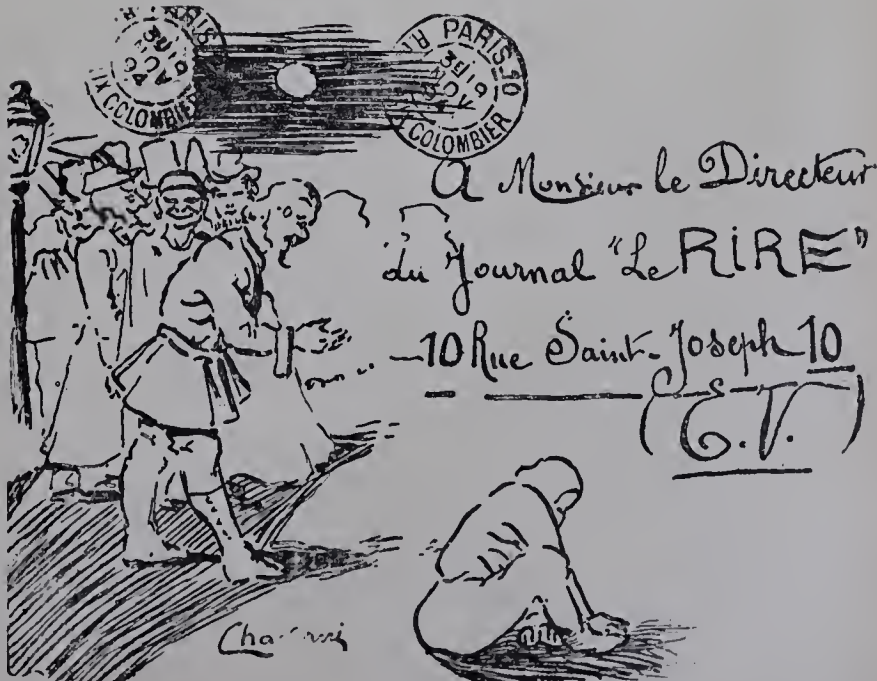 PARIS
COLOMBIER
PARIS 50
COLOMBIER
A Monsieur le Directeur
du Journal "Le RIRE"
—10 Rue Saint-Joseph 10
(E.V.)